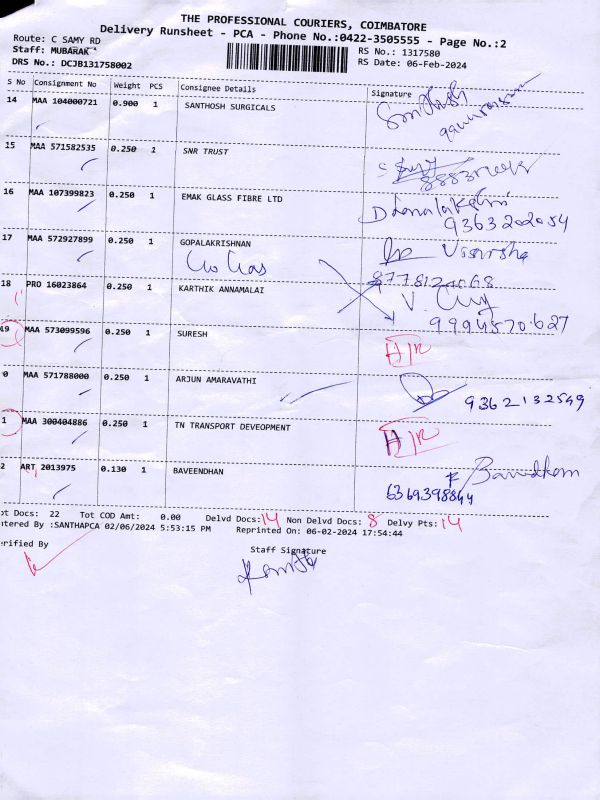 THE PROFESSIONAL COURIERS, COIMBATORE
Delivery Runsheet - PCA - Phone No.:0422-3505555 - Page No.:2
Route: C SAMY RD
Staff: MUBARAK
RS No.: 1317580
DRS No.: DCJB131758002
RS Date: 06-Feb-2024
S No Consignment No Weight PCS Consignee Details Signature
14 MAA 104000721 0.900 1 SANTHOSH SURGICALS Santhosh
15 MAA 571582535 0.250 1 SNR TRUST
16 MAA 107399823 0.250 1 EMAK GLASS FIBRE LTD Dhanalakshmi
9363202054
17 MAA 572927899 0.250 1 GOPALAKRISHNAN
18 PRO 16023864 0.250 1 KARTHIK ANNAMALAI
9994570627
19 MAA 573099596 0.250 1 SURESH
0 MAA 571788000 0.250 1 ARJUN AMARAVATHI 9362132549
1 MAA 300404886 0.250 1 TN TRANSPORT DEVEOPMENT
2 ART 2013975 0.130 1 BAVEENDHAN
ot Docs: 22 Tot COD Amt: 0.00 Delvd Docs: 14 Non Delvd Docs: 8 Delvy Pts: 14
ntered By :SANTHAPCA 02/06/2024 5:53:15 PM Reprinted On: 06-02-2024 17:54:44
erified By
Staff Signature